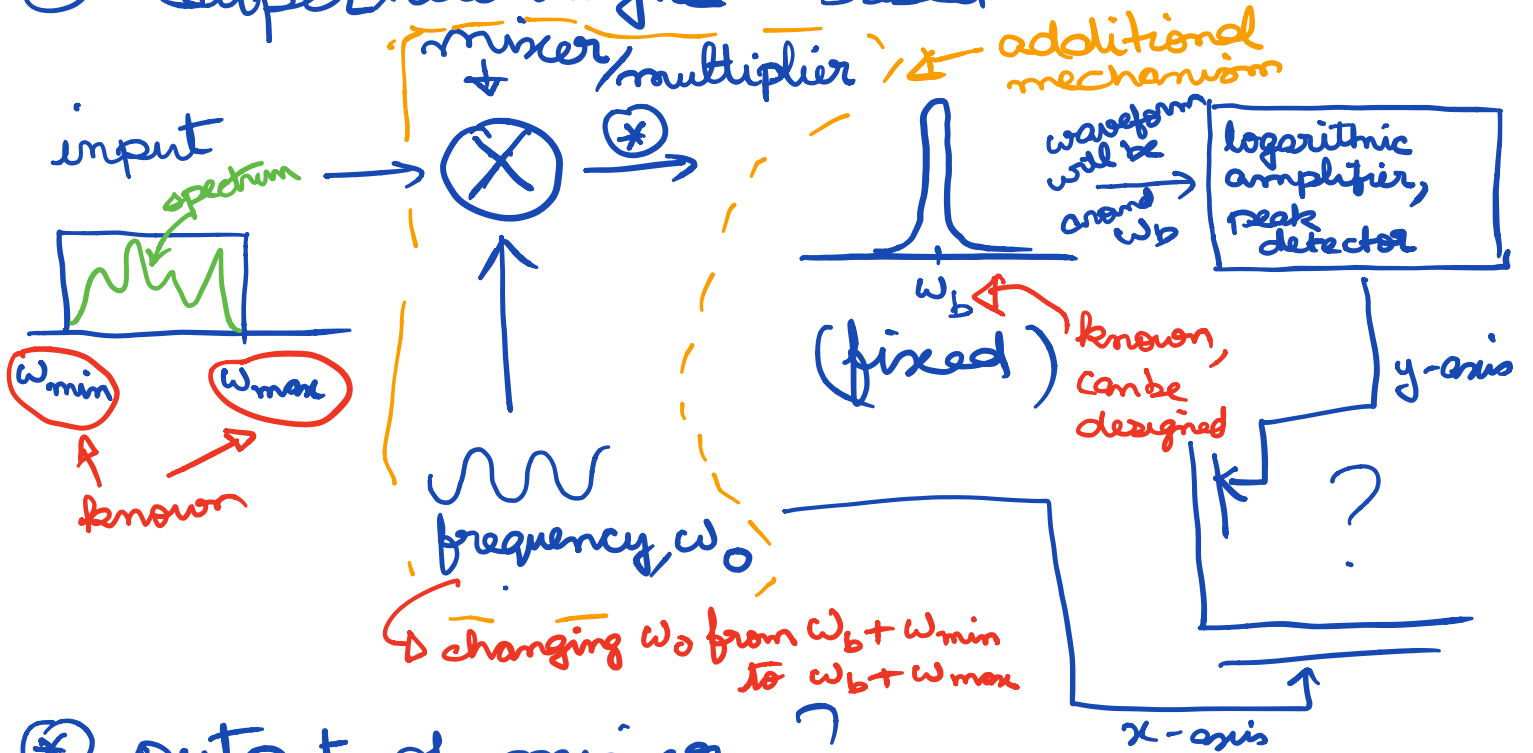 mixer
/multiplier
additional
mechanism
input
spectrum
*
waveform
will be
around
ωb
logarithmic
amplifier,
peak
detector
ωb
(fixed)
known,
can be
designed
ωmin
ωmax
known
y-axis
?
frequency, ω0
changing ω0 from ωb + ωmin
to ωb + ωmax
x-axis
* output of mixer
?